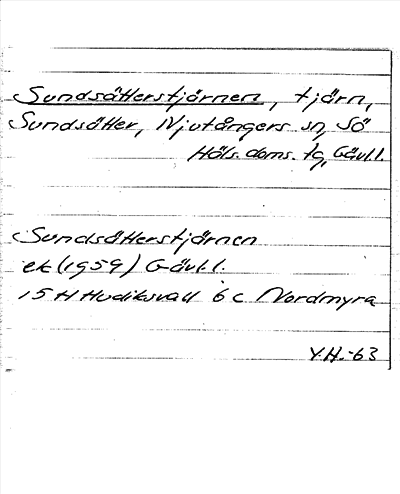 Sundsätterstjärnen, tjärn,
Sundsätter, Njutångers sn, Sö
Häls. doms. tg, Gävl.l.
Sundsätterstjärnen
ek (1959) Gävl.l.
15 H Hudiksvall 6 c Nordmyra
Y.H.-63